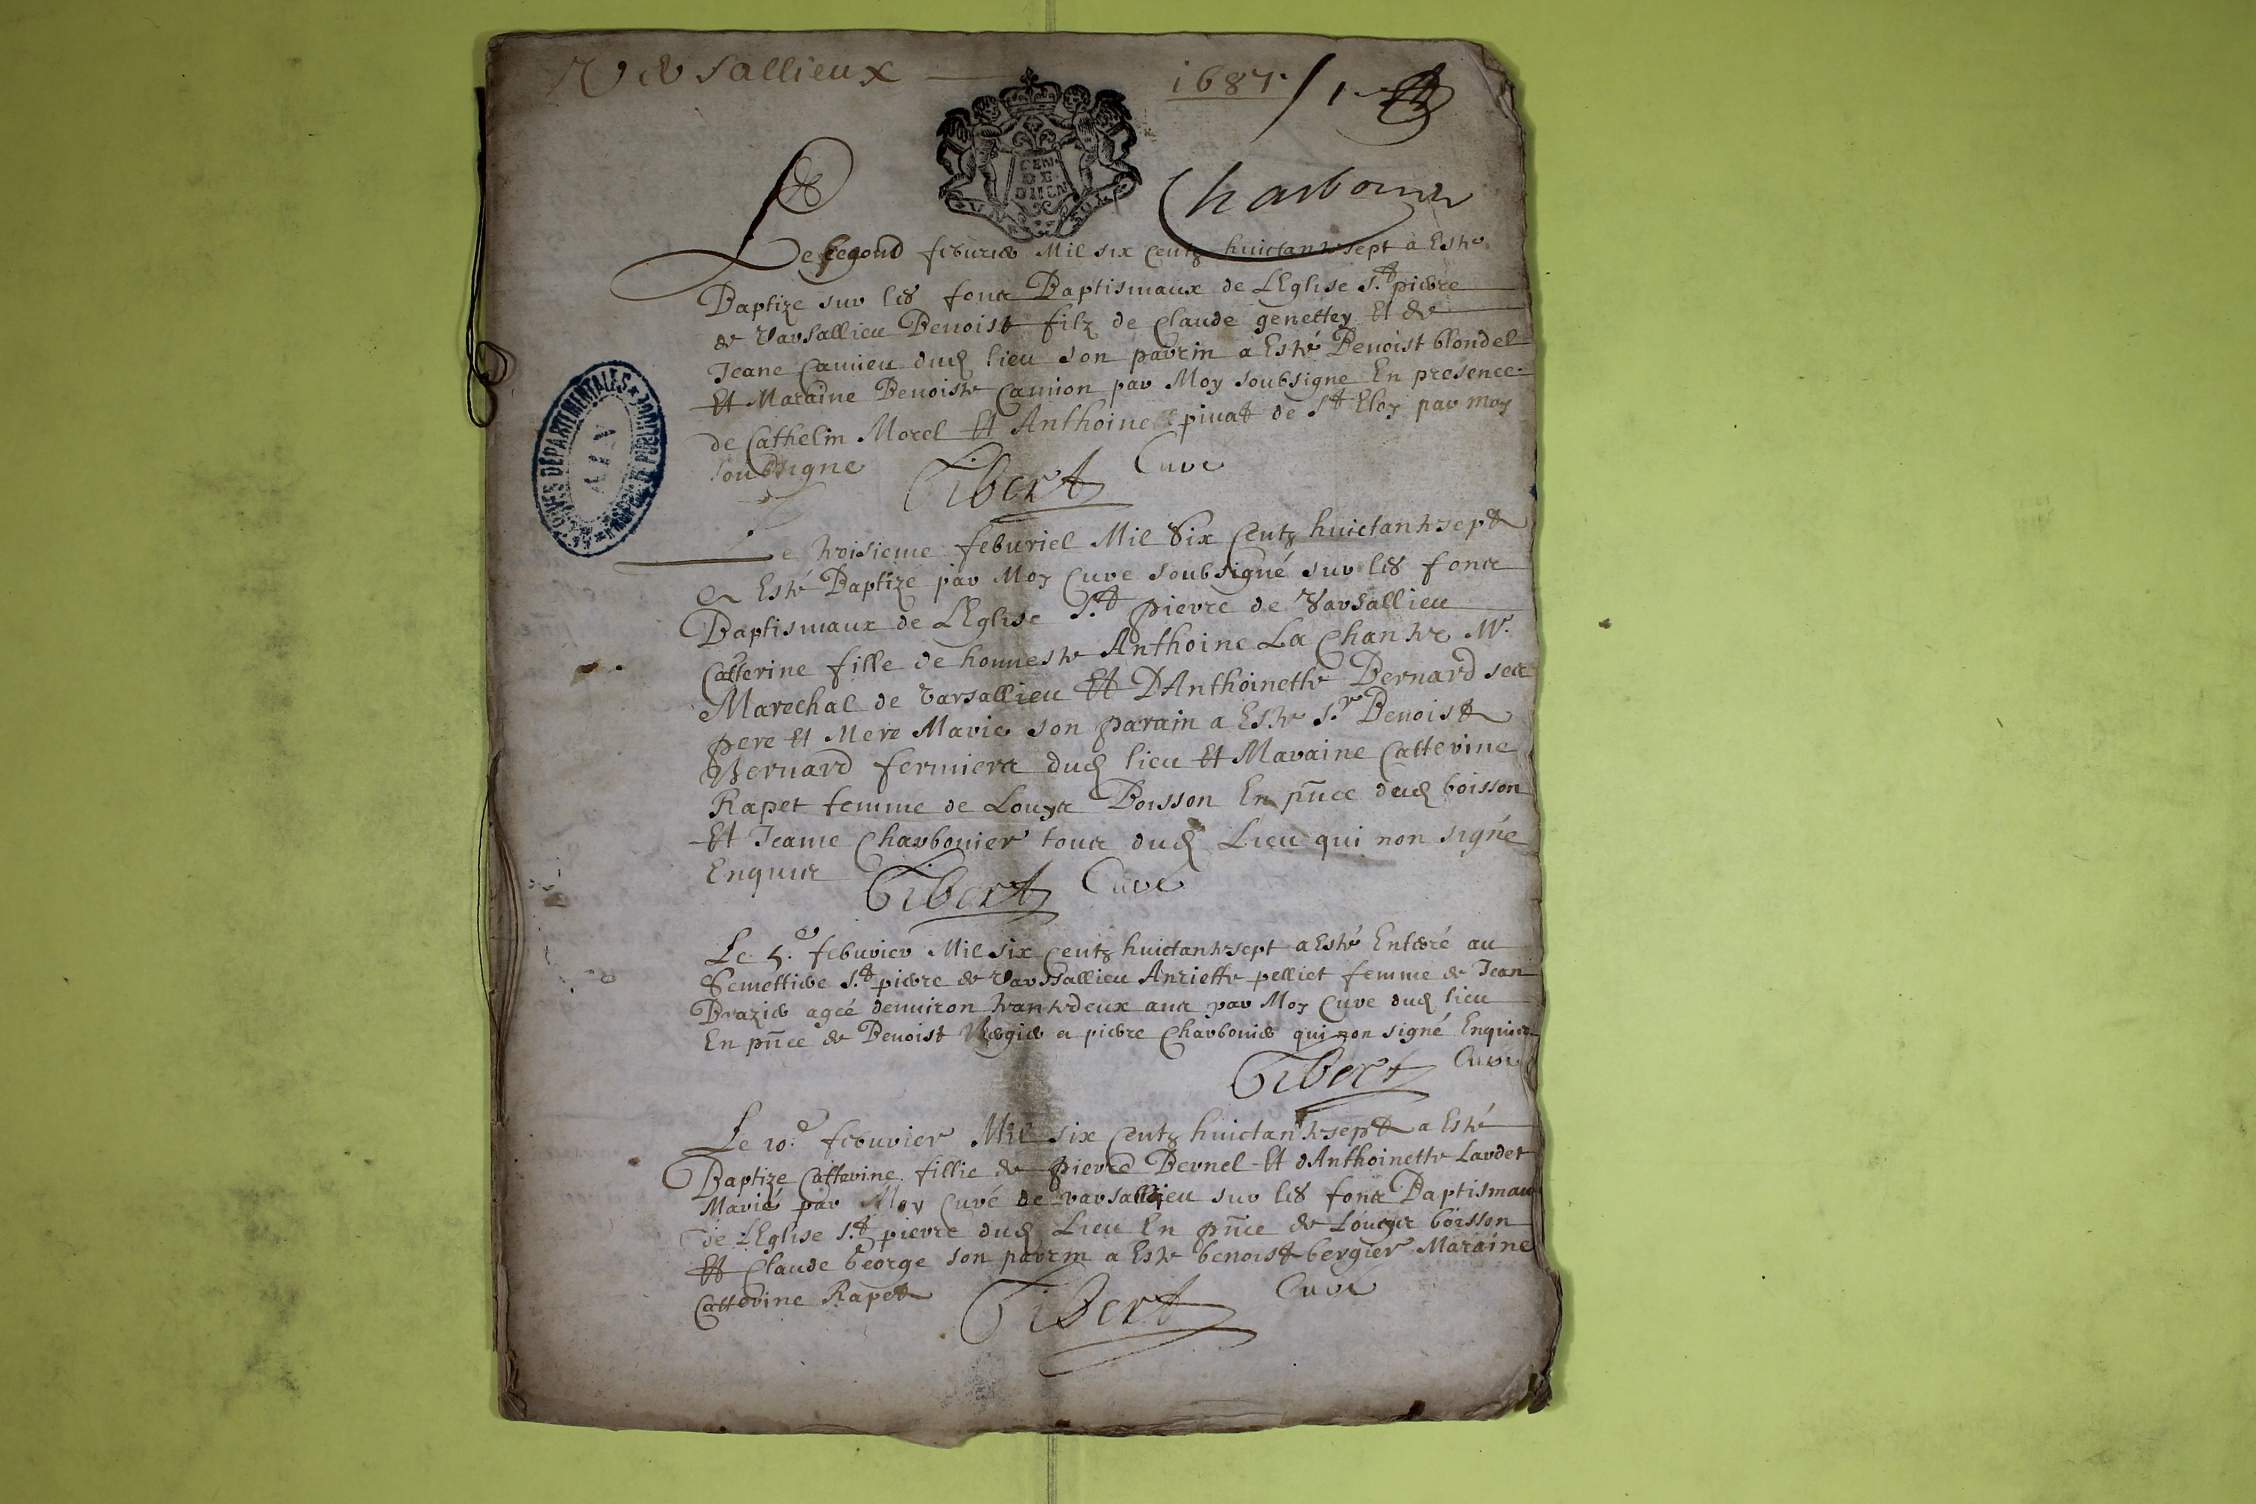 Versallieux 1687
Charbonnr
GEN.
DE
DIION
Le segond feburier Mil six centz huictante sept a Este
Baptize sur les fons Baptismaux de LEglise St pierre
de Varsallieu Benoist filz de Claude genettey Et de
Jeane Camieu dud lieu son parrin a Esté Benoist blondel
Et Maraine Benoiste Camion par Moy soubsigne En presence
de Cathelin Morel Et Anthoine pivat de St Eloy par moy
soubsigne Gibert Curé
Le troisieme feburiel Mil Six Centz huictante sept
a Esté Baptizé par Moy Cure soubsigné sur les fons
Baptismaux de LEglise St pierre de Varsallieu
Catterine fille de honneste Anthoine La Chantre Mr
Marechal de Varsallieu Et DAnthoinette Bernard ses
pere Et Mere Maries son parain a Este Sr Benoist
Bernard fermiers dud lieu Et Maraine Catterine
Rapet femme de Louys Boisson En pnce dud boisson
Et Jeame Charbonier tous dud Lieu qui non signé
Enquis Gibert Curé
Le 5e feburier Mil six centz huictante sept a Esté Enterré au
Semettiere St pierre de Varssallieu Anriette pelliet femme de Jean
Brazier ageé denviron trante deux ans par Moy Cure dud lieu
En pnce de Benoist et pierre Charbonier qui non signé Enquis
Gibert Curé
Le 10e feburier Mil six Centz huictante sept a Esté
Baptize Catterine fillie de pierre Bernel Et dAnthoinette Lardet
Mariés par Moy Curé de varsallieu sur les fons Baptismaux
de LEglise St pierre dud Lieu En pnce de Louys boisson
Et Claude George son parrin a Este benoist bergier Maraine
Catterine Rapet Gibert Curé
ARCHIVES DÉPARTEMENTALES
AIN